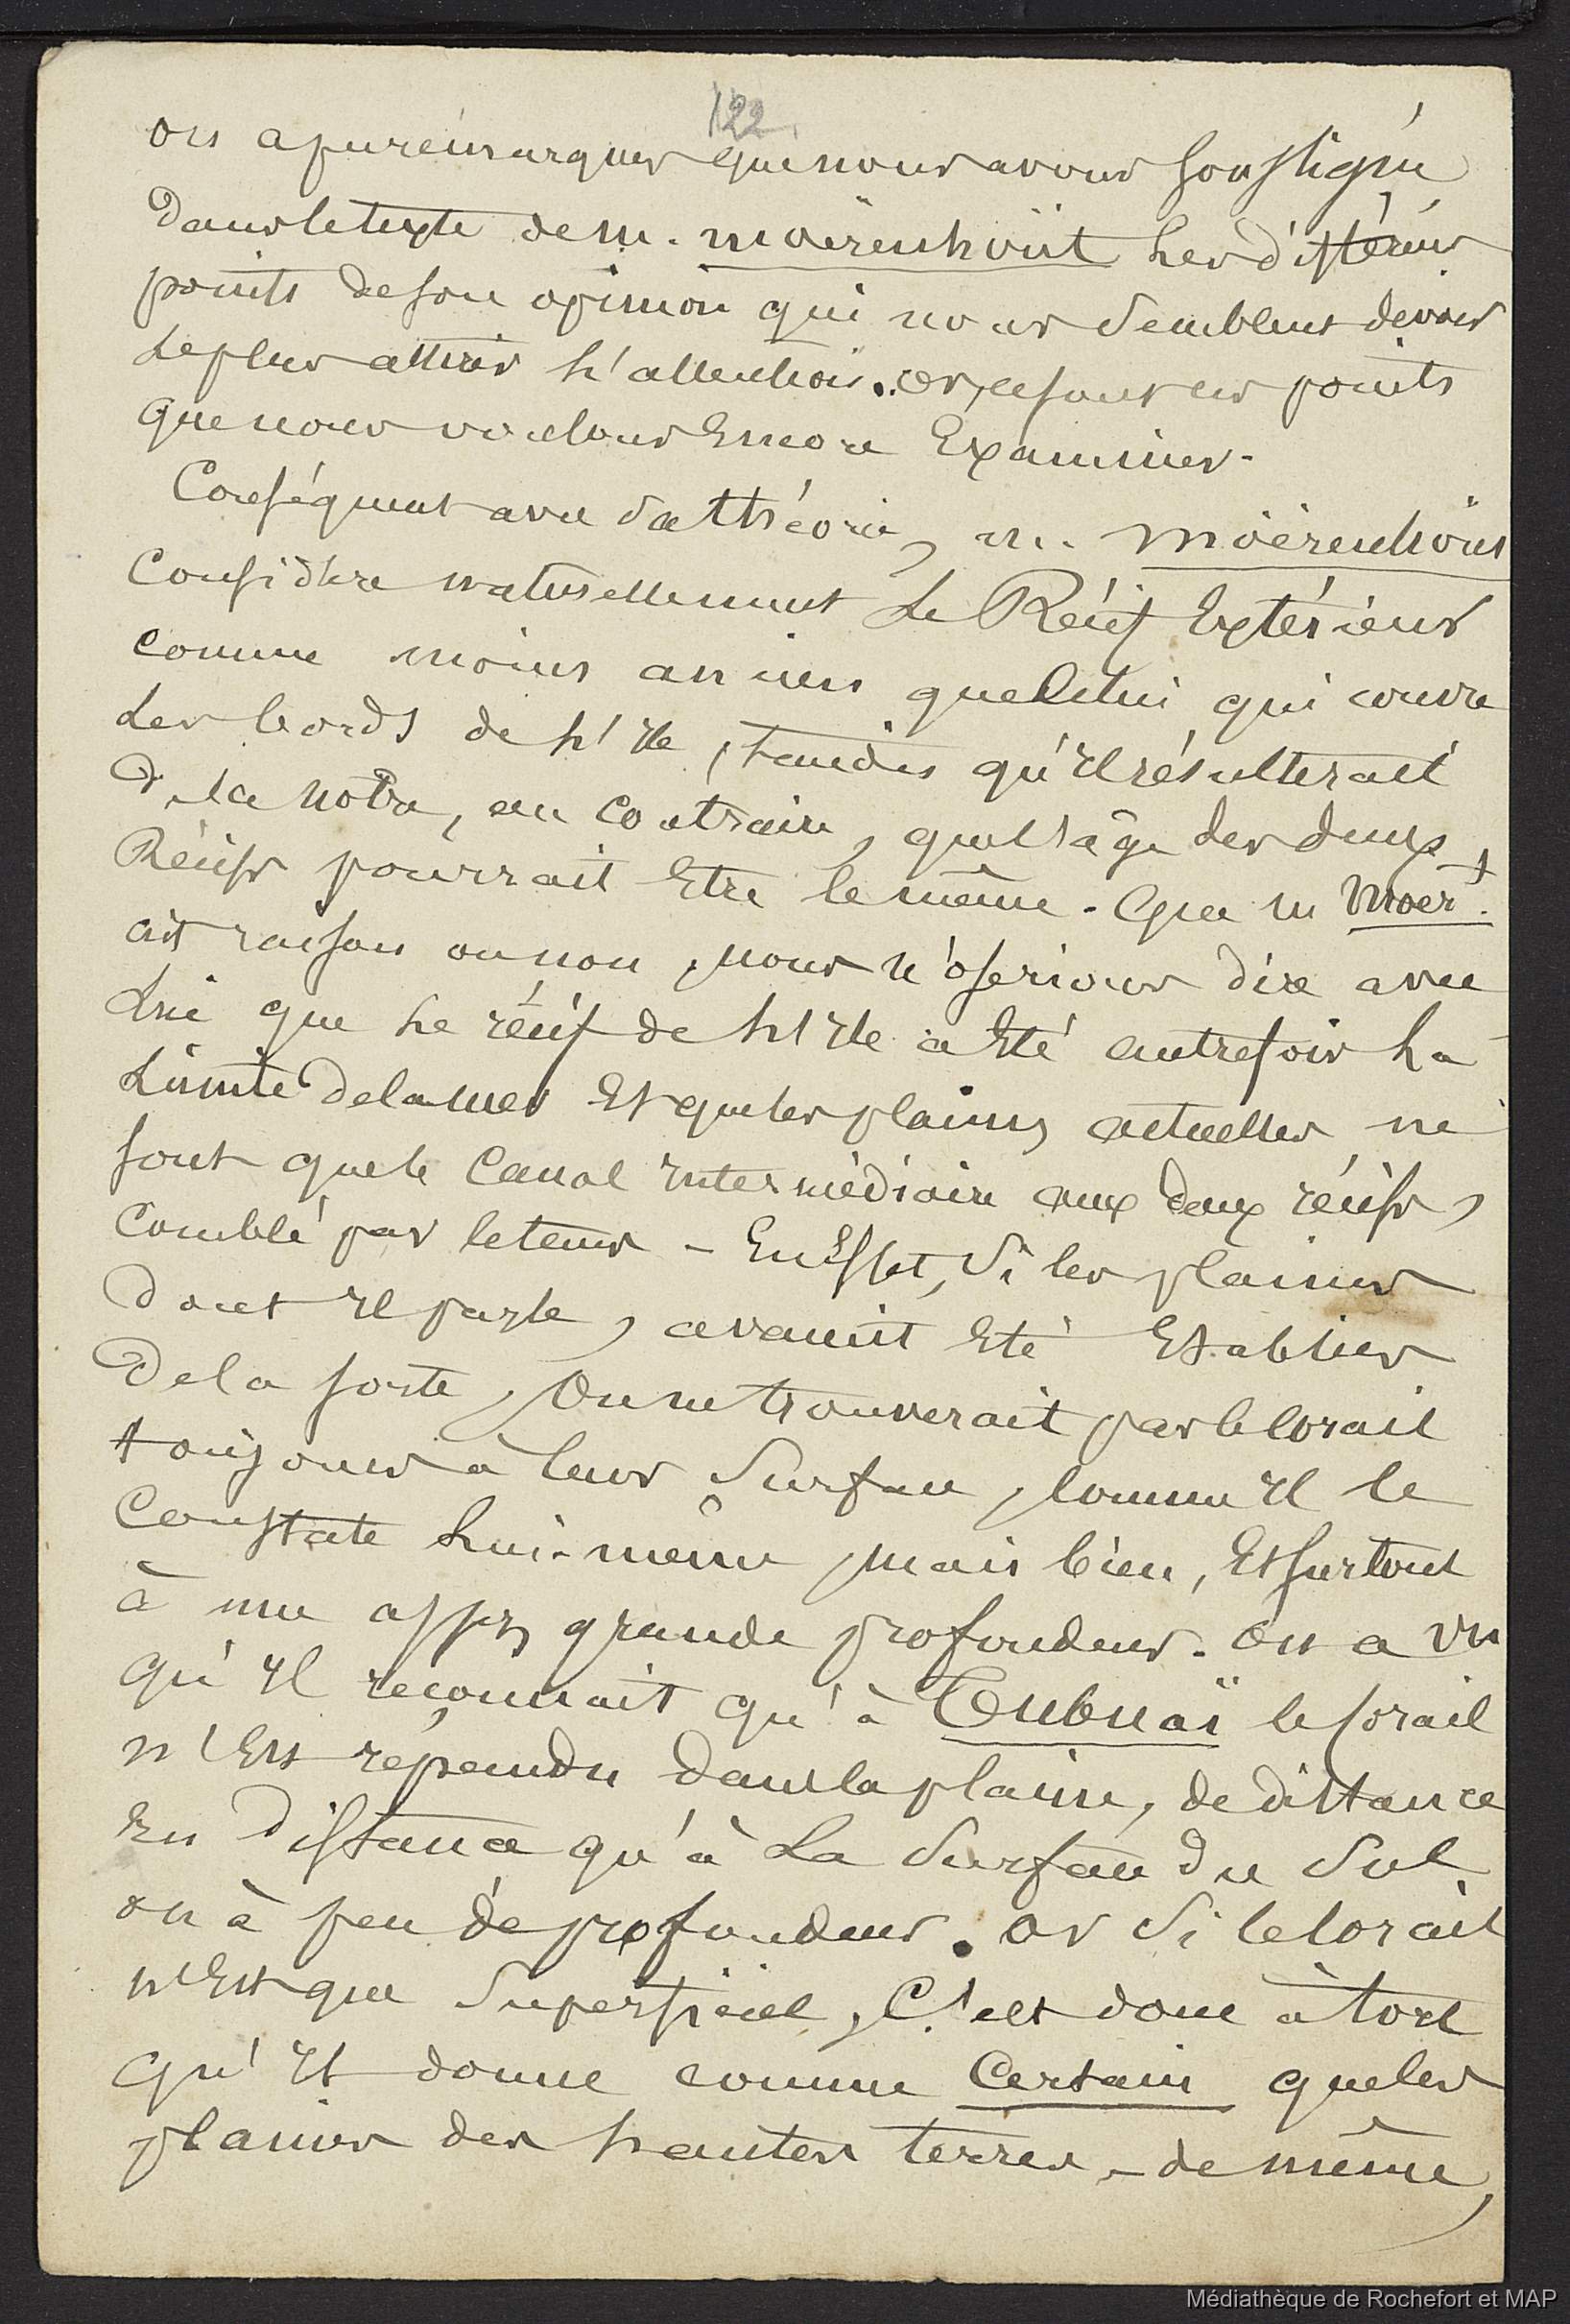 122
on a pu remarquer que nous avons souligné
dans le texte de M. Moërenhoüt les différens
points de son opinion qui nous semblent devoir
le plus attirer l'attention. Or, ce sont ces points
que nous voulons Encore Examiner.
Conséquent avec sa théorie, M. Moërenhoüt
considère naturellement le Récif Extérieur
comme moins ancien que celui qui couvre
les bords de l'Ile, tandis qu'il résulterait
de la nôtre, au contraire, que l'âge des deux
Récifs pourrait Etre le même. Que M Moert.
ait raison ou non, nous n'oserions dire avec
lui que le récif de l'Ile a Eté autrefois la
limite de la mer Et que les plaines actuelles ne
sont que le Canal Intermédiaire aux deux récifs,
comblé par le tems – En Effet, si les plaines
dont Il parle, avaient Eté Etablies
de la sorte, On ne trouverait pas le corail
toujours à leur surface, comme Il le
constate lui-même, mais bien, Et surtout
à une assez grande profondeur. On a vu
qu'Il reconnait qu'à Tubuaï le corail
n'Est répandu dans la plaine, de distance
En distance qu'à la surface du sol
ou à peu de profondeur. Or si le corail
n'Est que superficiel, C'est donc à tort
qu'Il donne comme Certain que les
plaines des hautes terres – de même,
Médiathèque de Rochefort et MAP